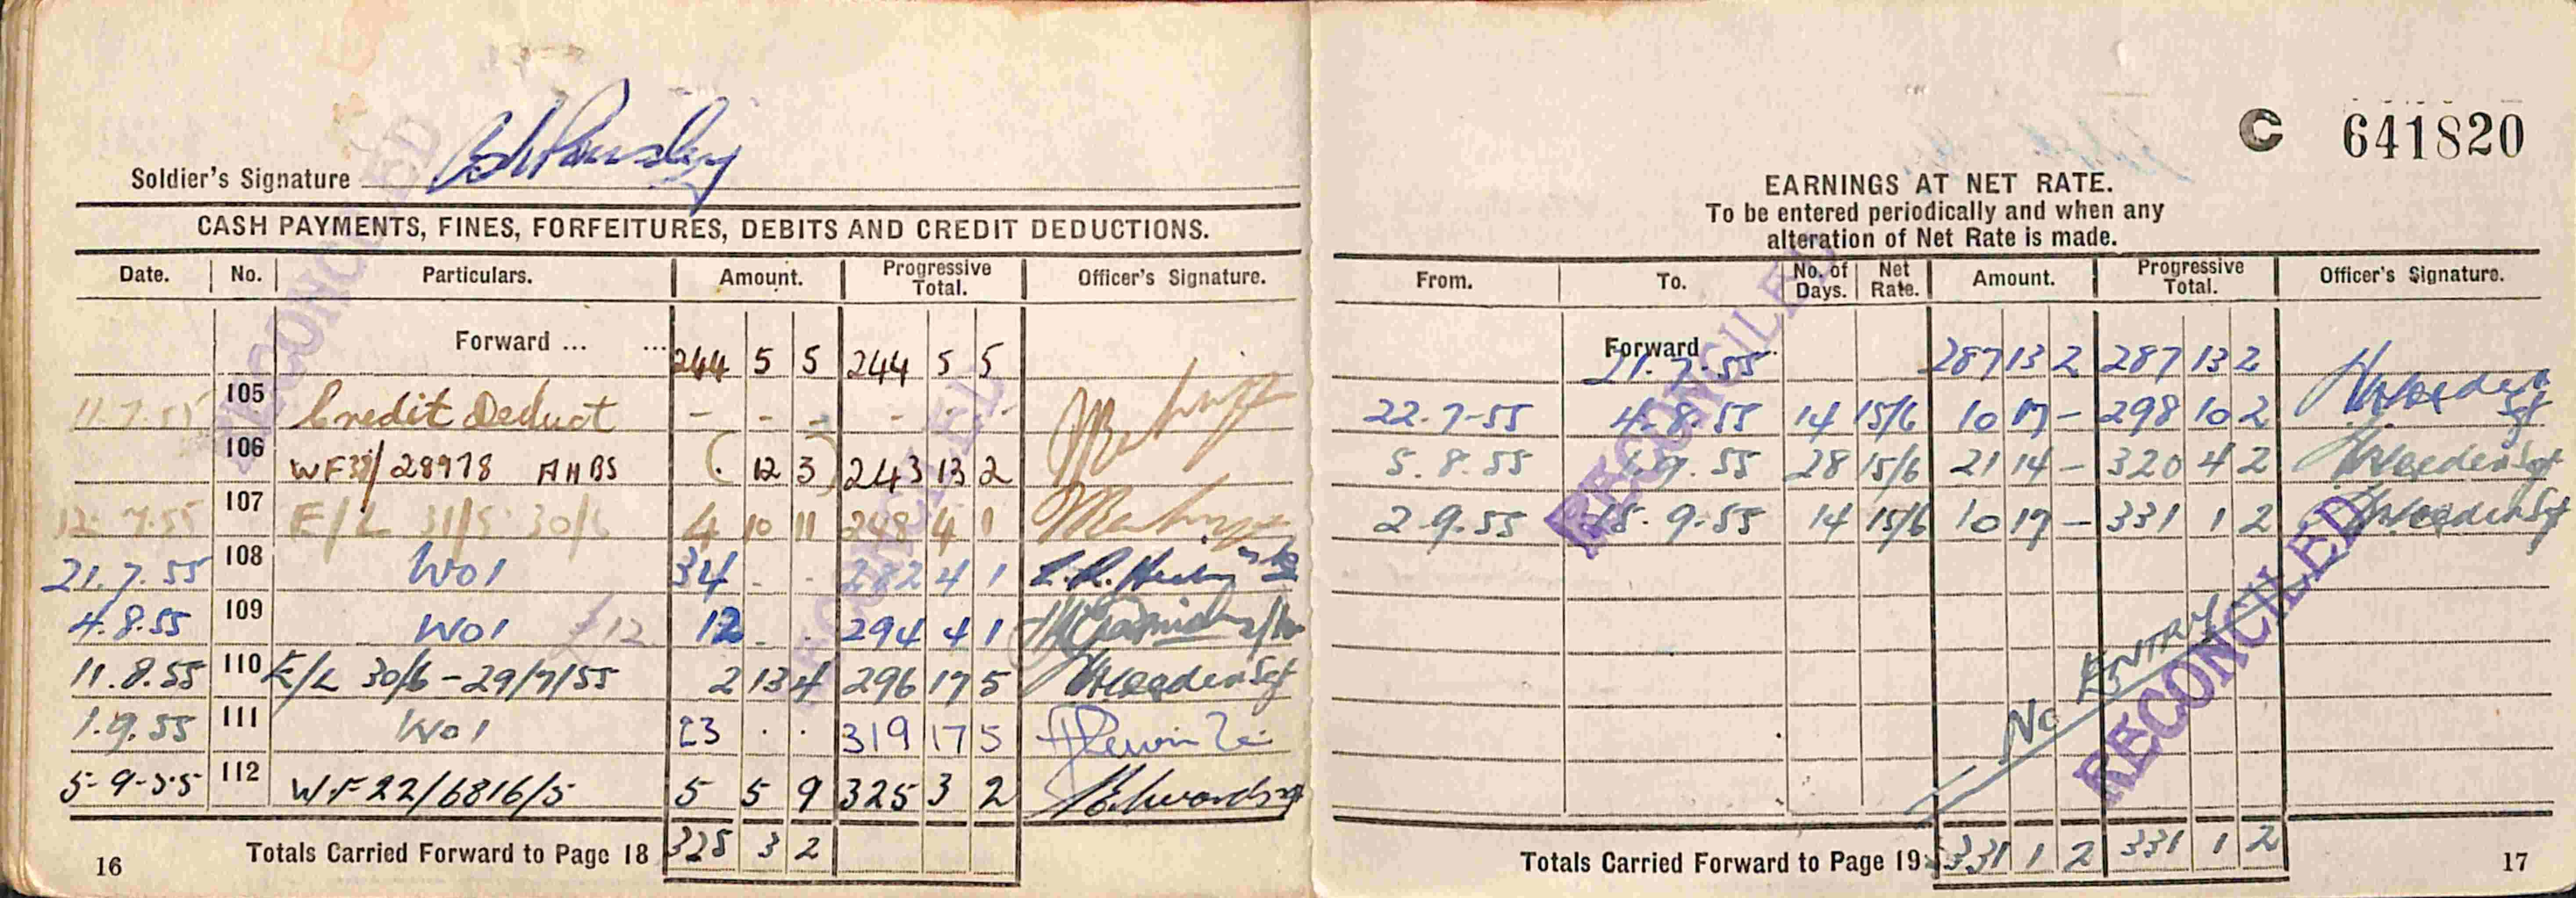 Soldier's Signature
CASH PAYMENTS, FINES, FORFEITURES, DEBITS AND CREDIT DEDUCTIONS.
Date. No. Particulars. Amount. Progressive Total. Officer's Signature.
Forward ... ... 244 5 5 244 5 5
11.7.55 105 Credit Deduct - - - - - -
106 WF38/28978 AHBS (. 12 3) 243 13 2
12.7.55 107 E/L 31/5 30/6 4 10 11 248 4 1
21.7.55 108 W01 34 - - 282 4 1
4.8.55 109 W01 £12 12 - . 294 4 1
11.8.55 110 E/L 30/6 - 29/7/55 2 13 4 296 17 5 Sgt
1.9.55 111 W01 23 . . 319 17 5
5-9-55 112 W.F 22/6816/5 5 5 9 325 3 2
Totals Carried Forward to Page 18 325 3 2
16
RECONCILED
RECONCILED
C 641820
EARNINGS AT NET RATE.
To be entered periodically and when any
alteration of Net Rate is made.
From. To. No. of Days. Net Rate. Amount. Progressive Total. Officer's Signature.
Forward 21.7.55 287 13 2 287 13 2
22.7-55 4.8.55 14 15/6 10 17 - 298 10 2 Sgt
5.8.55 1.9.55 28 15/6 21 14 - 320 4 2 Sgt
2.9.55 15.9.55 14 15/6 10 17 - 331 1 2 Sgt
No ENTRY
RECONCILED
RECONCILED
Totals Carried Forward to Page 19 331 1 2 331 1 2
17